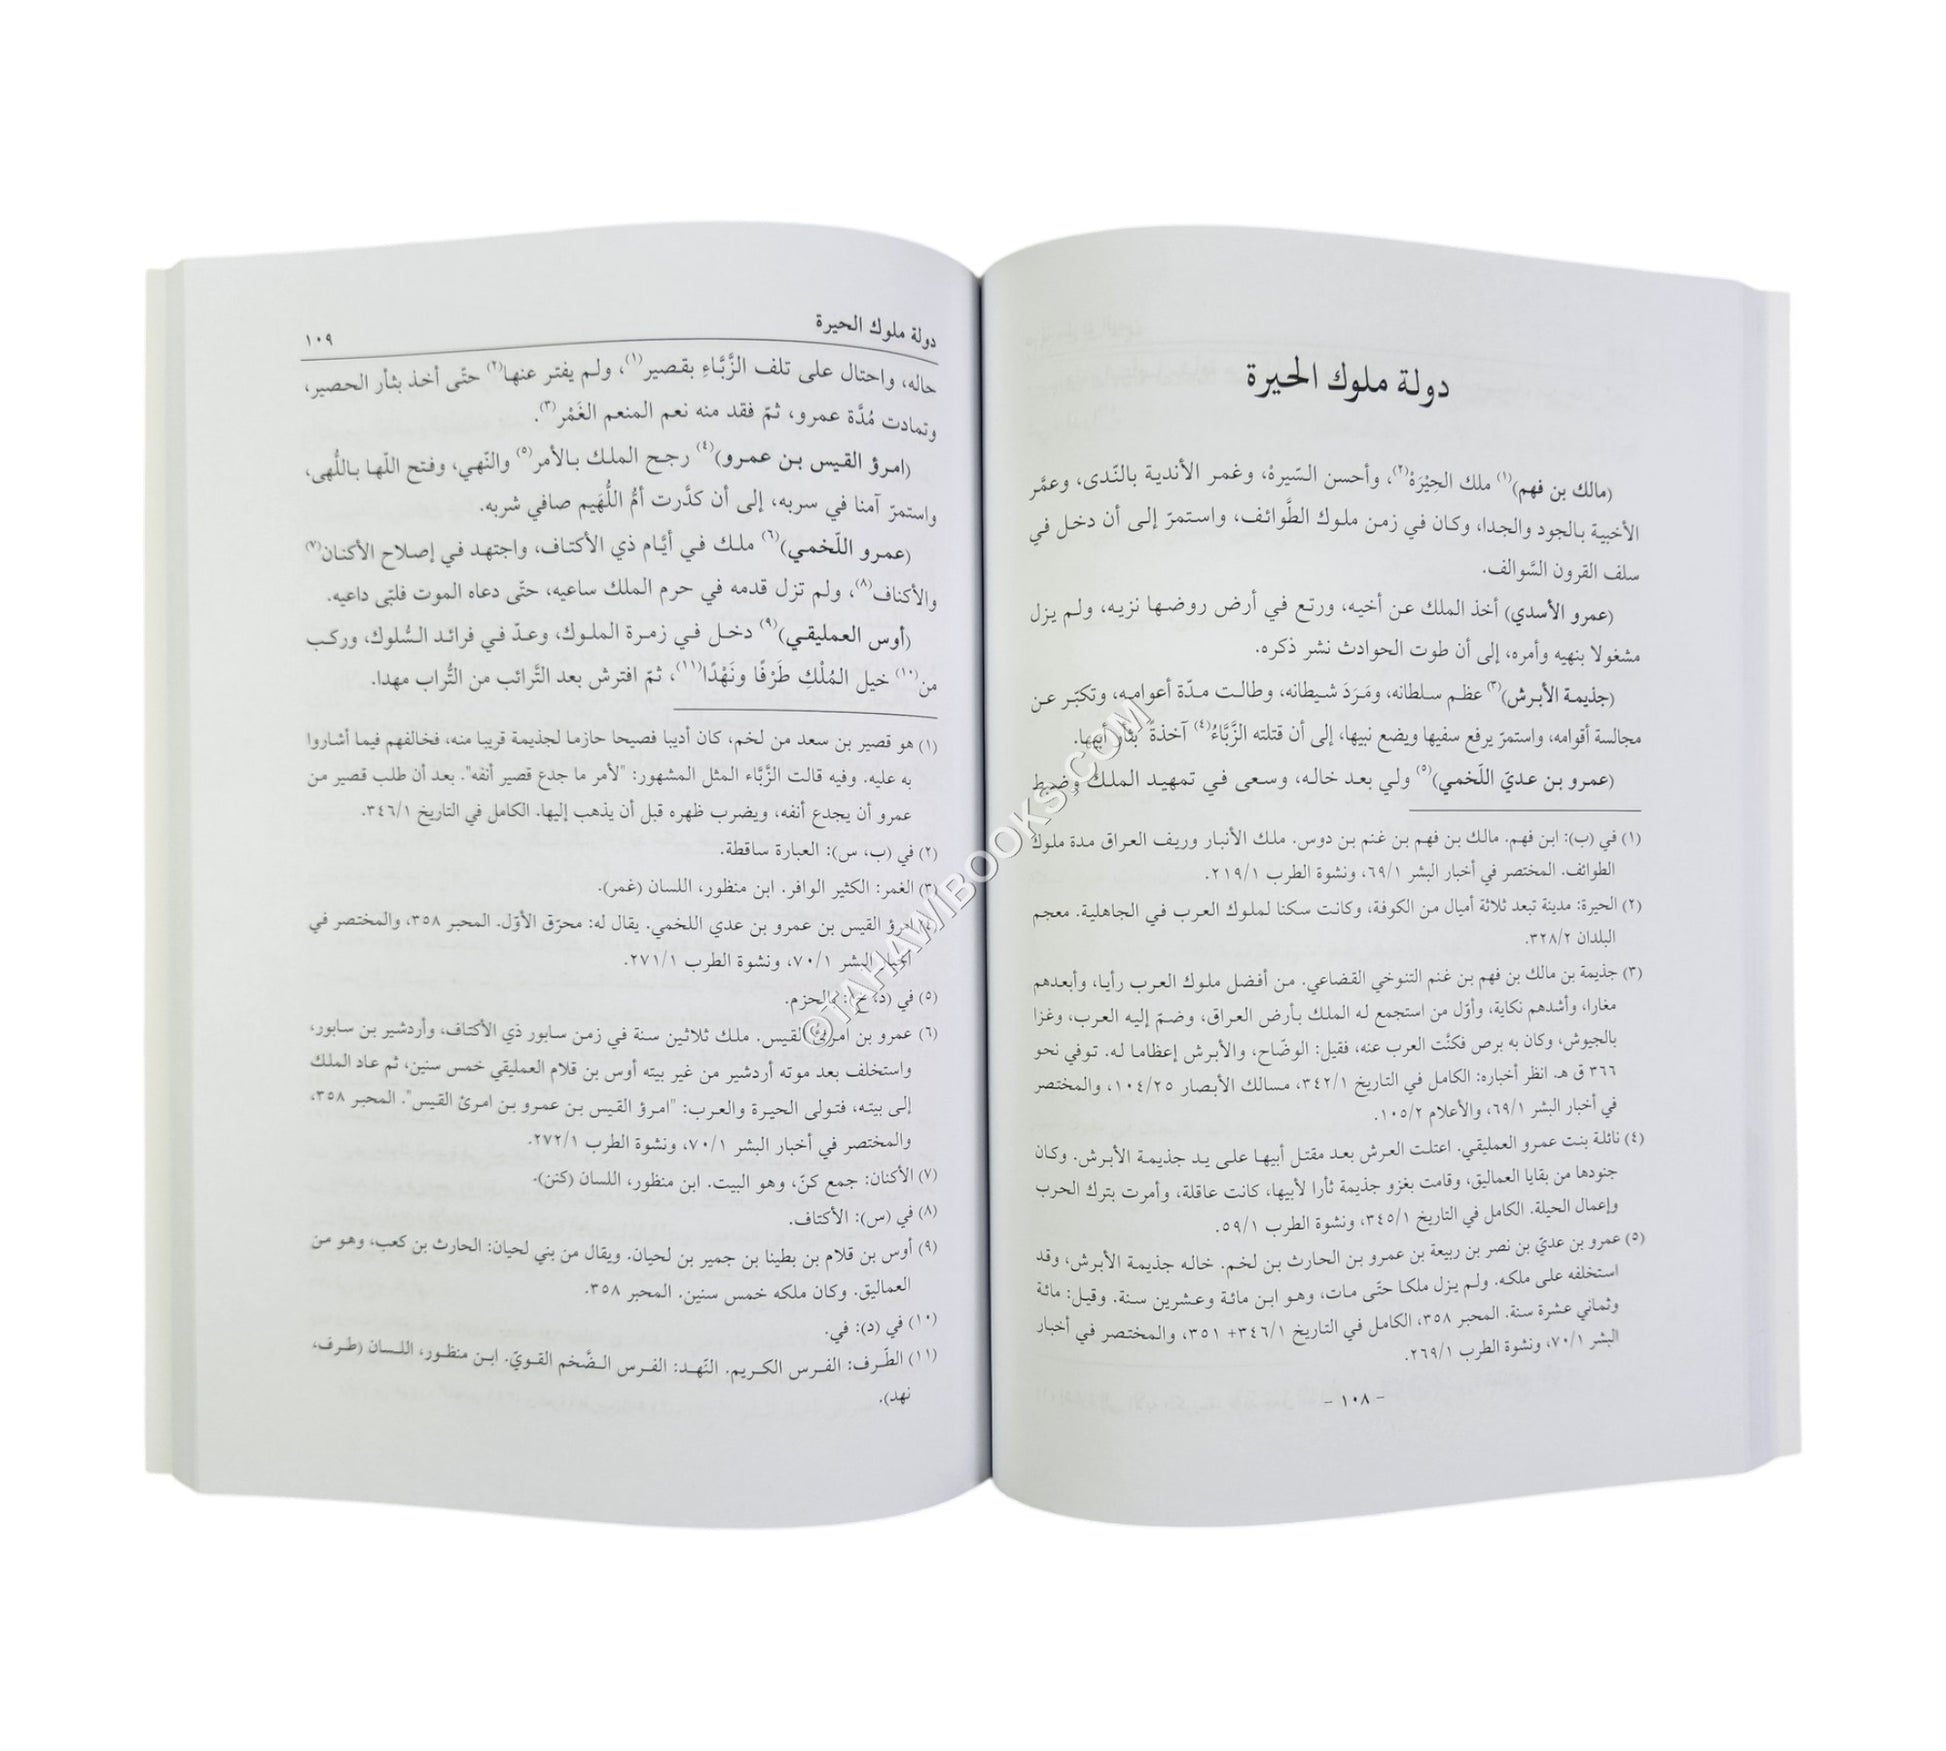 دولة ملوك الحيرة
(مالك بن فهم)(١) ملك الحِيْرَة(٢)، وأحسن السّيرة، وغمر الأندية بالنّدى، وعمَّر
الأخبية بالجود والجدا، وكان في زمن ملوك الطَّوائف، واستمرّ إلى أن دخل في
سلف القرون السَّوالف.
(عمرو الأسدي) أخذ الملك عن أخيه، ورتع في أرض روضها نزيه، ولم يزل
مشغولا بنهيه وأمره، إلى أن طوت الحوادث نشر ذكره.
(جذيمة الأبرش)(٣) عظم سلطانه، ومَرَدَ شيطانه، وطالت مدّة أعوامه، وتكبّر عن
مجالسة أقوامه، واستمرّ يرفع سفيها ويضع نبيها، إلى أن قتلته الزَّبَّاءُ(٤) آخذةً بثأر أبيها.
(عمرو بن عديّ اللّخمي)(٥) ولي بعد خاله، وسعى في تمهيد الملك وضبط
(١) في (ب): ابن فهم. مالك بن فهم بن غنم بن دوس. ملك الأنبار وريف العراق مدة ملوك
الطوائف. المختصر في أخبار البشر ٦٩/١، ونشوة الطرب ٢١٩/١.
(٢) الحيرة: مدينة تبعد ثلاثة أميال من الكوفة، وكانت سكنا لملوك العرب في الجاهلية. معجم
البلدان ٣٢٨/٢.
(٣) جذيمة بن مالك بن فهم بن غنم التنوخي القضاعي. من أفضل ملوك العرب رأيا، وأبعدهم
مغارا، وأشدهم نكاية، وأوّل من استجمع له الملك بأرض العراق، وضمّ إليه العرب، وغزا
بالجيوش، وكان به برص فكنَّت العرب عنه، فقيل: الوضّاح، والأبرش إعظاما له. توفي نحو
٣٦٦ ق هـ. انظر أخباره: الكامل في التاريخ ٣٤٢/١، مسالك الأبصار ١٠٤/٢٥، والمختصر
في أخبار البشر ٦٩/١، والأعلام ١٠٥/٢.
(٤) نائلة بنت عمرو العمليقي. اعتلت العرش بعد مقتل أبيها على يد جذيمة الأبرش. وكان
جنودها من بقايا العماليق، وقامت بغزو جذيمة ثأرا لأبيها، كانت عاقلة، وأمرت بترك الحرب
وإعمال الحيلة. الكامل في التاريخ ٣٤٥/١، ونشوة الطرب ٥٩/١.
(٥) عمرو بن عديّ بن نصر بن ربيعة بن عمرو بن الحارث بن لخم. خاله جذيمة الأبرش، وقد
استخلفه على ملكه. ولم يزل ملكا حتّى مات، وهو ابن مائة وعشرين سنة. وقيل: مائة
وثماني عشرة سنة. المحبر ٣٥٨، الكامل في التاريخ ٣٤٦/١+ ٣٥١، والمختصر في أخبار
البشر ٧٠/١، ونشوة الطرب ٢٦٩/١.
- ١٠٨ -
دولة ملوك الحيرة ١٠٩
حاله، واحتال على تلف الزَّبَّاءِ بقصير(١)، ولم يفتر عنها(٢) حتّى أخذ بثأر الحصير،
وتمادت مُدَّة عمرو، ثمّ فقد منه نعم المنعم الغَمْر(٣).
(امرؤ القيس بن عمرو)(٤) رجح الملك بالأمر(٥) والنّهي، وفتح اللّها باللُّهى،
واستمرّ آمنا في سربه، إلى أن كدَّرت أمُّ اللُّهَيم صافي شربه.
(عمرو اللّخمي)(٦) ملك في أيَّام ذي الأكتاف، واجتهد في إصلاح الأكنان(٧)
والأكناف(٨)، ولم تزل قدمه في حرم الملك ساعيه، حتّى دعاه الموت فلبّى داعيه.
(أوس العمليقي)(٩) دخل في زمرة الملوك، وعدّ في فرائد السُّلوك، وركب
من(١٠) خيل المُلْكِ طَرْفًا ونَهْدًا(١١)، ثمّ افترش بعد التَّرائب من التُّراب مهدا.
(١) هو قصير بن سعد من لخم، كان أديبا فصيحا حازما لجذيمة قريبا منه، فخالفهم فيما أشاروا
به عليه. وفيه قالت الزَّبَّاء المثل المشهور: "لأمر ما جدع قصير أنفه". بعد أن طلب قصير من
عمرو أن يجدع أنفه، ويضرب ظهره قبل أن يذهب إليها. الكامل في التاريخ ٣٤٦/١.
(٢) في (ب، س): العبارة ساقطة.
(٣) الغمر: الكثير الوافر. ابن منظور، اللسان (غمر).
(٤) امرؤ القيس بن عمرو بن عدي اللخمي. يقال له: محرّق الأوّل. المحبر ٣٥٨، والمختصر في
أخبار البشر ٧٠/١، ونشوة الطرب ٢٧١/١.
(٥) في (د، ع): بالحزم.
(٦) عمرو بن امرئ القيس. ملك ثلاثين سنة في زمن سابور ذي الأكتاف، وأردشير بن سابور،
واستخلف بعد موته أردشير من غير بيته أوس بن قلام العمليقي خمس سنين، ثم عاد الملك
إلى بيته، فتولى الحيرة والعرب: "امرؤ القيس بن عمرو بن امرئ القيس". المحبر ٣٥٨،
والمختصر في أخبار البشر ٧٠/١، ونشوة الطرب ٢٧٢/١.
(٧) الأكنان: جمع كنّ، وهو البيت. ابن منظور، اللسان (كنن).
(٨) في (س): الأكتاف.
(٩) أوس بن قلام بن بطينا بن جمير بن لحيان. ويقال من بني لحيان: الحارث بن كعب، وهو من
العماليق. وكان ملكه خمس سنين. المحبر ٣٥٨.
(١٠) في (د): في.
(١١) الطّرف: الفرس الكريم. النّهد: الفرس الضّخم القويّ. ابن منظور، اللسان (طرف،
نهد).
©TAHAWIBOOKS.COM